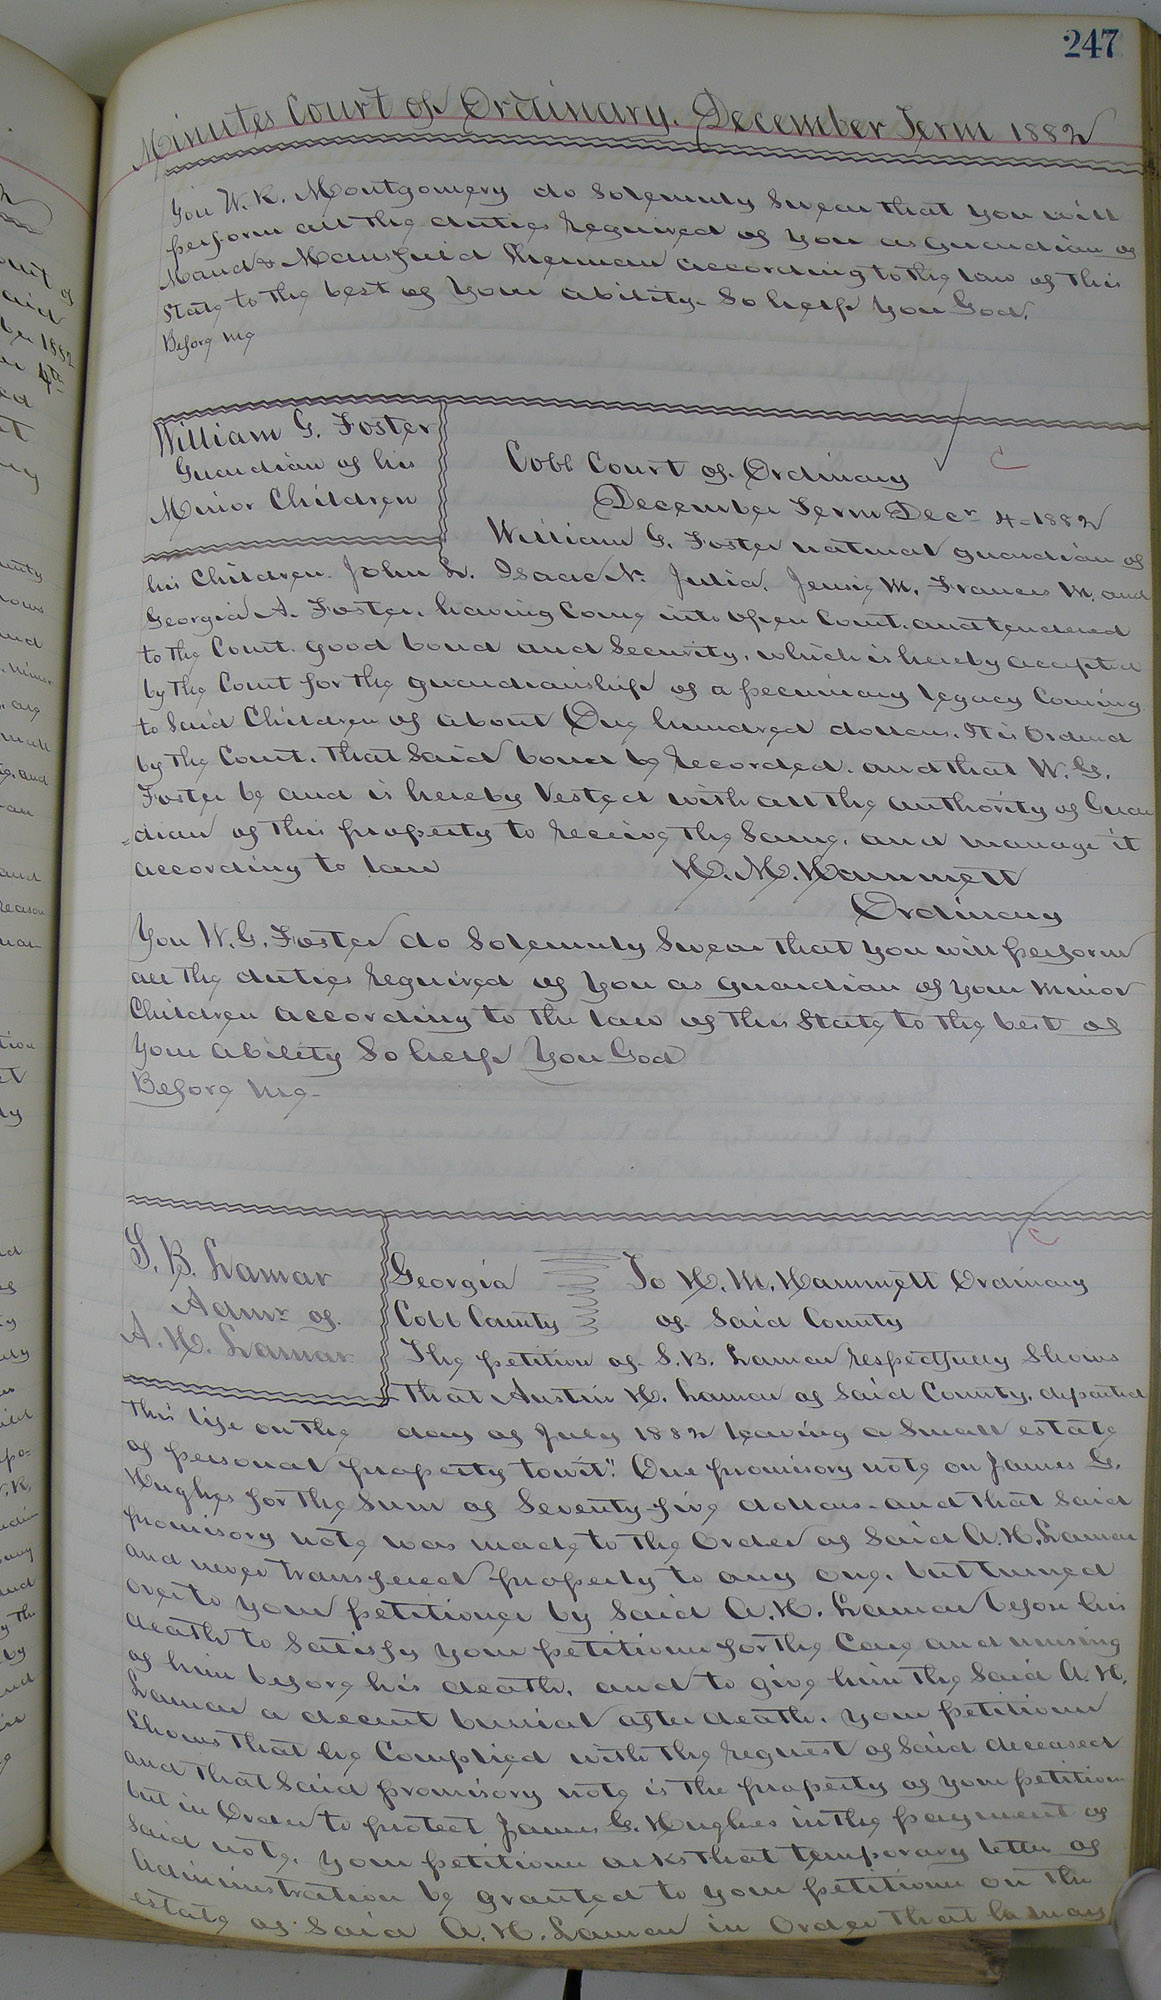 247
Minutes Court of Ordinary. December Term 1882
You W. R. Montgomery do Solemnly Swear that you will
perform all the duties required of you as Guardian of
Maud & Mansfield Sherman according to the law of this
State to the best of your ability. So help you God.
Before me
William G. Foster
Guardian of his
Minor Children
Cobb Court of Ordinary
December Term Decr 4-1882
William G. Foster natural guardian of
his Children. John L. Isaac N. Julia. Jensie M. Frances M. and
Georgia A. Foster. having Come into open Court. and tendered
to the Court. good bond and Security, which is hereby accepted
by the Court for the guardianship of a pecuniary legacy Coming
to Said Children of about One hundred dollars. It is Ordered
by the Court. that Said bond be recorded. and that W. G.
Foster be and is hereby Vested with all the authority of Guar
=dian of this property to receive the Same, and manage it
according to law
H. M. Hammett
Ordinary
You W. G. Foster do Solemnly Swear that you will perform
all the duties required of you as guardian of your minor
Children according to the law of this State to the best of
your ability So help you God
Before me-
S. B. Lamar
Admr of.
A. H. Lamar
Georgia
Cobb County
To H. M. Hammett Ordinary
of Said County
The petition of S. B. Lamar respectfully Shows
that Austin H. Lamar of Said County, departed
this life on the day of July 1882 leaving a Small estate
of personal property towit: One promisory note on James G.
Hughes for the Sum of Seventy-five dollars-and that Said
promisory note was made to the Order of Said A. H. Lamar
and never transfered property to any one, but turned
over to your petitioner by Said A. H. Lamar before his
death to Satisfy your petitioner for the Care and nursing
of him before his death, and to give him the Said A. H.
Lamar a decent burial after death. your petitioner
Shows that he Complied with the request of Said deceased
and that Said promisory note is the property of your petitioner
but in Order to protect James G. Hughes in the payment of
Said note, your petitioner asks that temporary letter of
Administration be granted to your petitioner on the
estate of Said A. H. Lamar in Order that he may